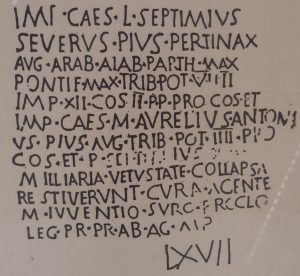 IMP CAES · L · SEPTIMIVS
SEVERVS · PIVS · PERTINAX
AVG · ARAB · AIAB · PARTH · MAX
PONTIF · MAX · TRIB · POT ·
IMP · XII · COS II · P·P· PRO COS · ET
IMP · CAES · M · AVRELIVS ANTONI
VS · PIVS · AVG · TRIB · POT · IIII · PRO
COS · ET · P ·
MILLIARIA · VETVSTATE · COLLAPSA
RESTIVERVNT · CVRA · AGENTE
M · IVVENTIO · SVRO ·
LEG · PR · PR ·
LXVII